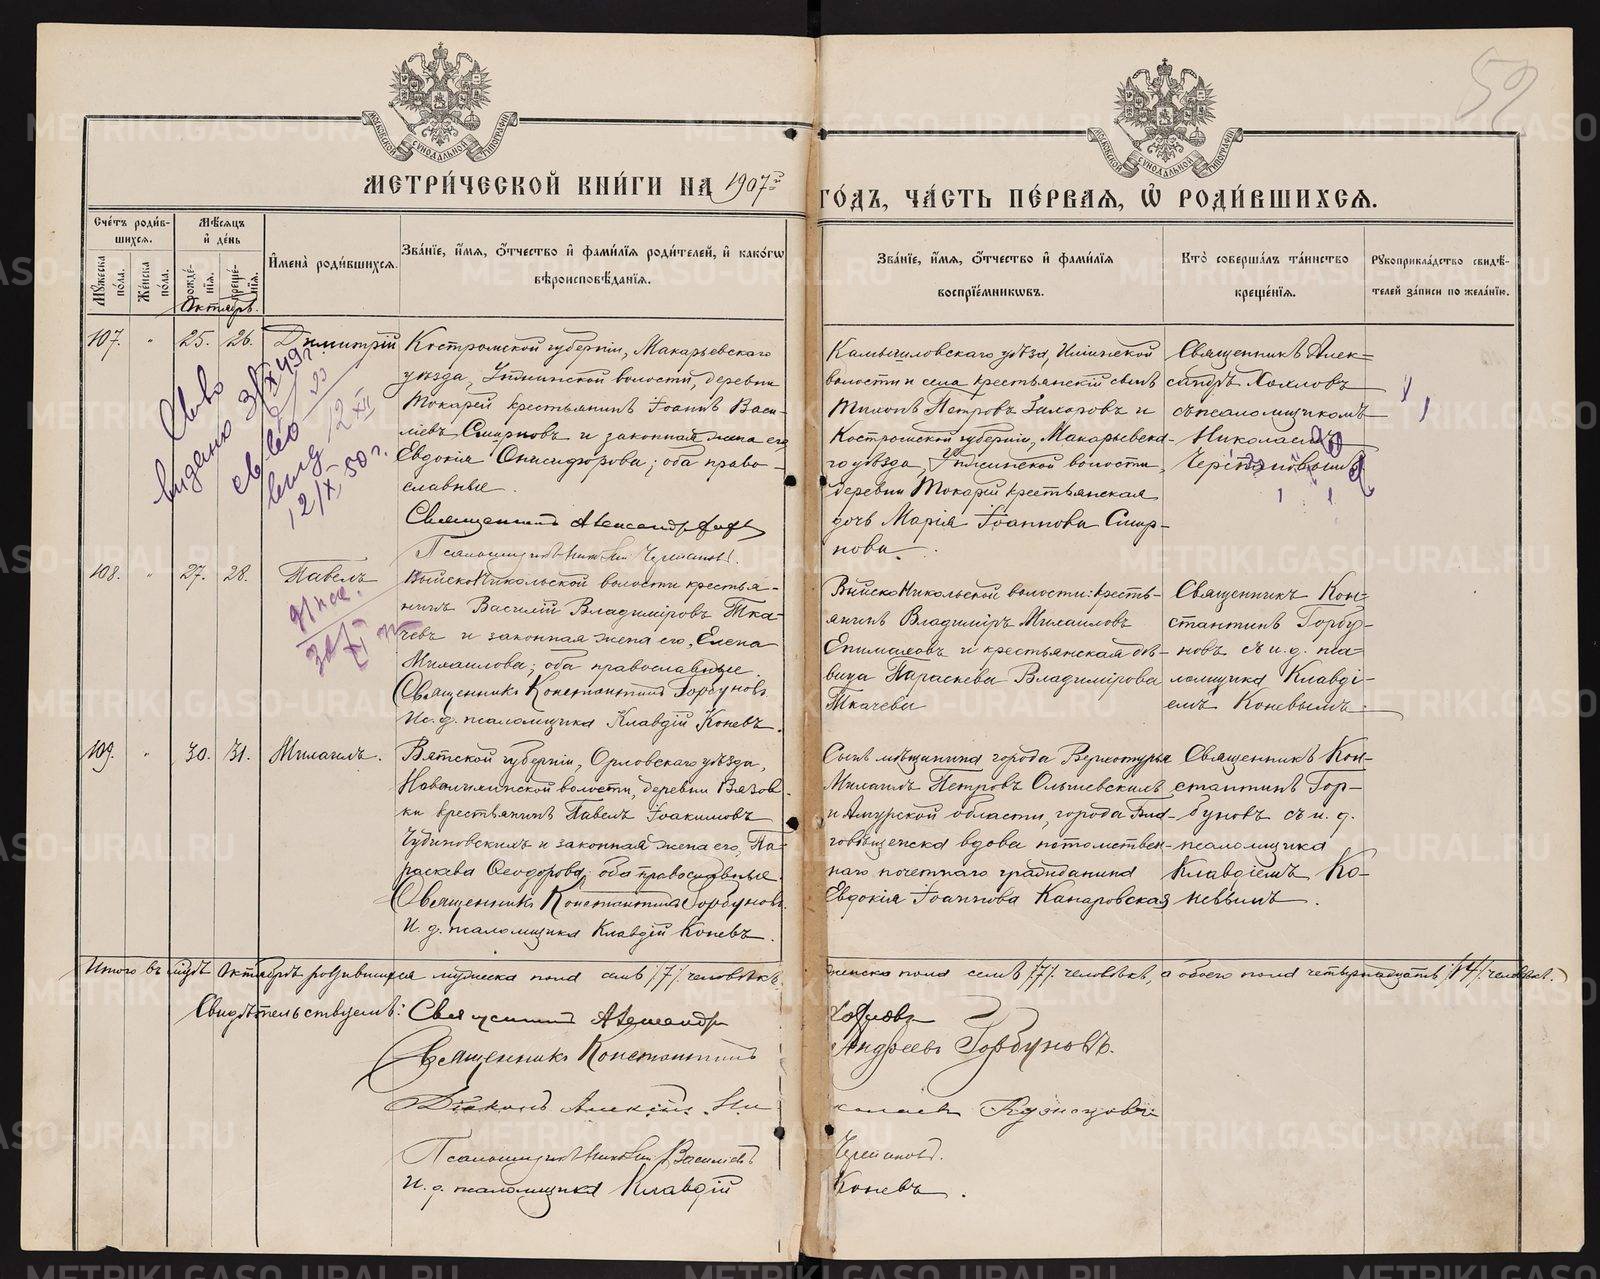 59
МОСКОВСКОЙ СѴНОДАЛЬНОЙ ТИПОГРАФІИ
МОСКОВСКОЙ СѴНОДАЛЬНОЙ ТИПОГРАФІИ
МЕТРИ́ЧЕСКОЙ КНИ́ГИ НА 1907й
ГО́ДЪ, ЧА́СТЬ ПЕ́РВАѦ, Ѽ РОДИ́ВШИХСѦ.
Сче́тъ роди́в-
шихсѧ.
Мѣ́сѧцъ
и҆ де́нь
Мꙋ́жеска по́ла.
Же́нска по́ла.
рожде́-
нїѧ.
креще́-
нїѧ.
И҆мена̀ роди́вшихсѧ.
Зва́нїе, и҆́мѧ, ѻ҆́тчество и҆ фами́лїѧ роди́телей, и҆ како́гѡ
вѣроисповѣ́данїѧ.
Зва́нїе, и҆́мѧ, ѻ҆́тчество и҆ фами́лїѧ
воспрїе́мникѡвъ.
Кто̀ соверша́лъ та́инство
креще́нїѧ.
Рꙋкоприкла́дство свидѣ́-
телей за́писи по жела́нїю.
Октябрь.
107. " 25. 26. Димитрій
Костромской губерніи, Макарьевскаго
уѣзда, волости, деревни
Токарей крестьянинъ Іоаннъ Васи-
ліевъ Смирновъ и законная жена его
Евдокія Онисифорова; оба право-
славные.
Священникъ Александръ
Псаломщикъ Николай Черепановъ.
Камышловскаго уѣзда, волости и села крестьянскій сынъ
Тихонъ Петровъ и
Костромской губерніи, Макарьевска-
го уѣзда, волости,
деревни Токарей крестьянская
дочь Марія Іоаннова Смир-
нова.
Священникъ Алек-
сандръ Хохловъ
съ псаломщикомъ
Николаемъ
Черепановымъ
видено 3/X 49 г.
12/X, 50 г.
108. " 27. 28. Павелъ
Выйско-Никольской волости крестья-
нинъ Василій Владиміровъ Тка-
чевъ и законная жена его, Елена
Михаилова; оба православные.
Священникъ Константинъ Горбуновъ.
И. д. псаломщика Клавдій Коневъ.
Выйско-Никольской волости: кресть-
янинъ Владиміръ Михаиловъ
Епимаховъ и крестьянская дѣ-
вица Параскева Владимірова
Ткачева
Священникъ Кон-
стантинъ Горбу-
новъ съ и. д. пса-
ломщика Клавді-
емъ Коневымъ.
109. " 30. 31. Михаилъ.
Вятской губерніи, Орловскаго уѣзда,
волости, деревни Вязов-
ки крестьянинъ Павелъ Іоакимовъ
и законная жена его, Па-
раскева Ѳеодорова; оба православные.
Священникъ Константинъ Горбуновъ.
И. д. псаломщика Клавдій Коневъ.
Сынъ мѣщанина города Верхотурья
Михаилъ Петровъ Ольшевскій
и Амурской области, города Бла-
говѣщенска вдова потомствен-
наго почетнаго гражданина
Евдокія Іоаннова Канаровская
Священникъ Кон-
стантинъ Гор-
буновъ съ и. д.
псаломщика
Клавдіемъ Ко-
невымъ.
Итого въ мѣсяцѣ Октябрѣ родившихся мужеска пола семь /7/ человѣкъ,
женска пола семь /7/ человѣкъ, а обоего пола четырнадцать /14/ человѣкъ.
Свидѣтельствуемъ: Священникъ Александръ Хохловъ
Священникъ Константинъ Андреевъ Горбуновъ.
Діаконъ Алексій Николаевъ Кузнецовъ
Псаломщикъ Николай Васильевъ Черепановъ.
И. д. псаломщика Клавдій Коневъ.
METRIKI.GASO-URAL.RU